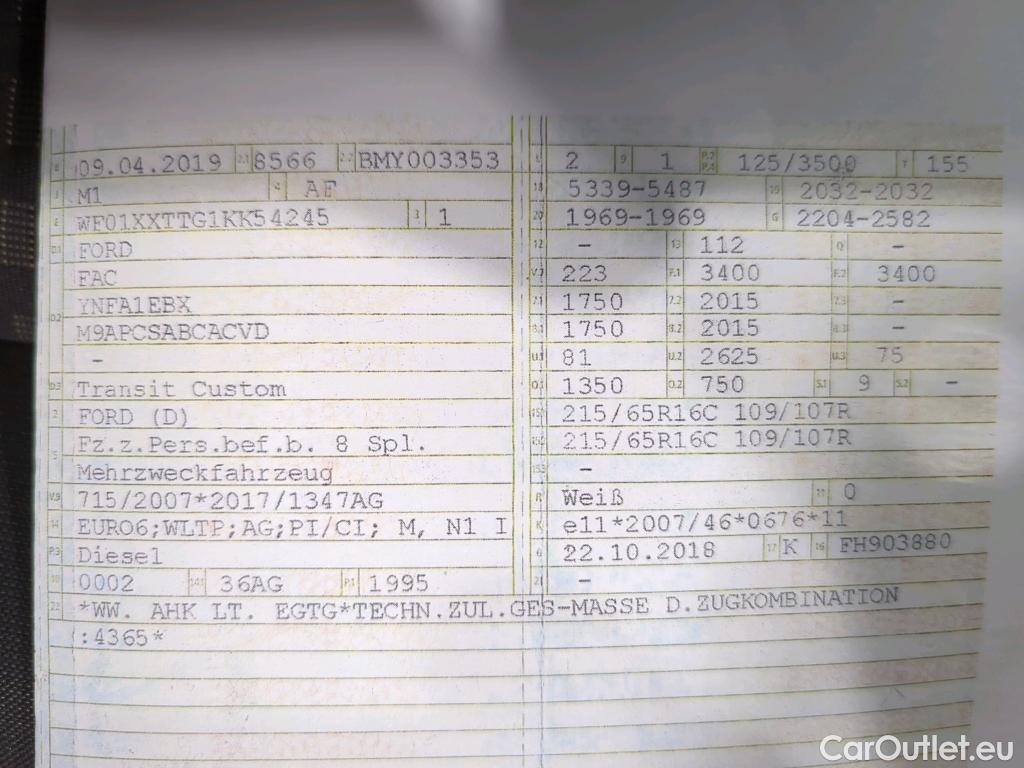 B 09.04.2019 2.1 8566 2.2 BMY003353
J M1 4 AF
E WF01XXTTG1KK54245 3 1
D.1 FORD
FAC
D.2 YNFA1EBX
M9APCSABCACVD
-
D.3 Transit Custom
2 FORD (D)
5 Fz.z.Pers.bef.b. 8 Spl.
Mehrzweckfahrzeug
V.9 715/2007*2017/1347AG
14 EURO6;WLTP;AG;PI/CI; M, N1 I
P.3 Diesel
10 0002 14.1 36AG P.1 1995
L 2 9 1 P.2 P.4 125/3500 T 155
18 5339-5487 19 2032-2032
20 1969-1969 G 2204-2582
12 - 13 112 Q -
V.7 223 F.1 3400 F.2 3400
7.1 1750 7.2 2015 7.3 -
8.1 1750 8.2 2015 8.3 -
U.1 81 U.2 2625 U.3 75
O.1 1350 O.2 750 S.1 9 S.2 -
15.1 215/65R16C 109/107R
15.2 215/65R16C 109/107R
15.3 -
R Weiß 11 0
K e11*2007/46*0676*11
6 22.10.2018 17 K 16 FH903880
21 -
22 *WW. AHK LT. EGTG*TECHN.ZUL.GES-MASSE D.ZUGKOMBINATION
:4365*
CarOutlet.eu